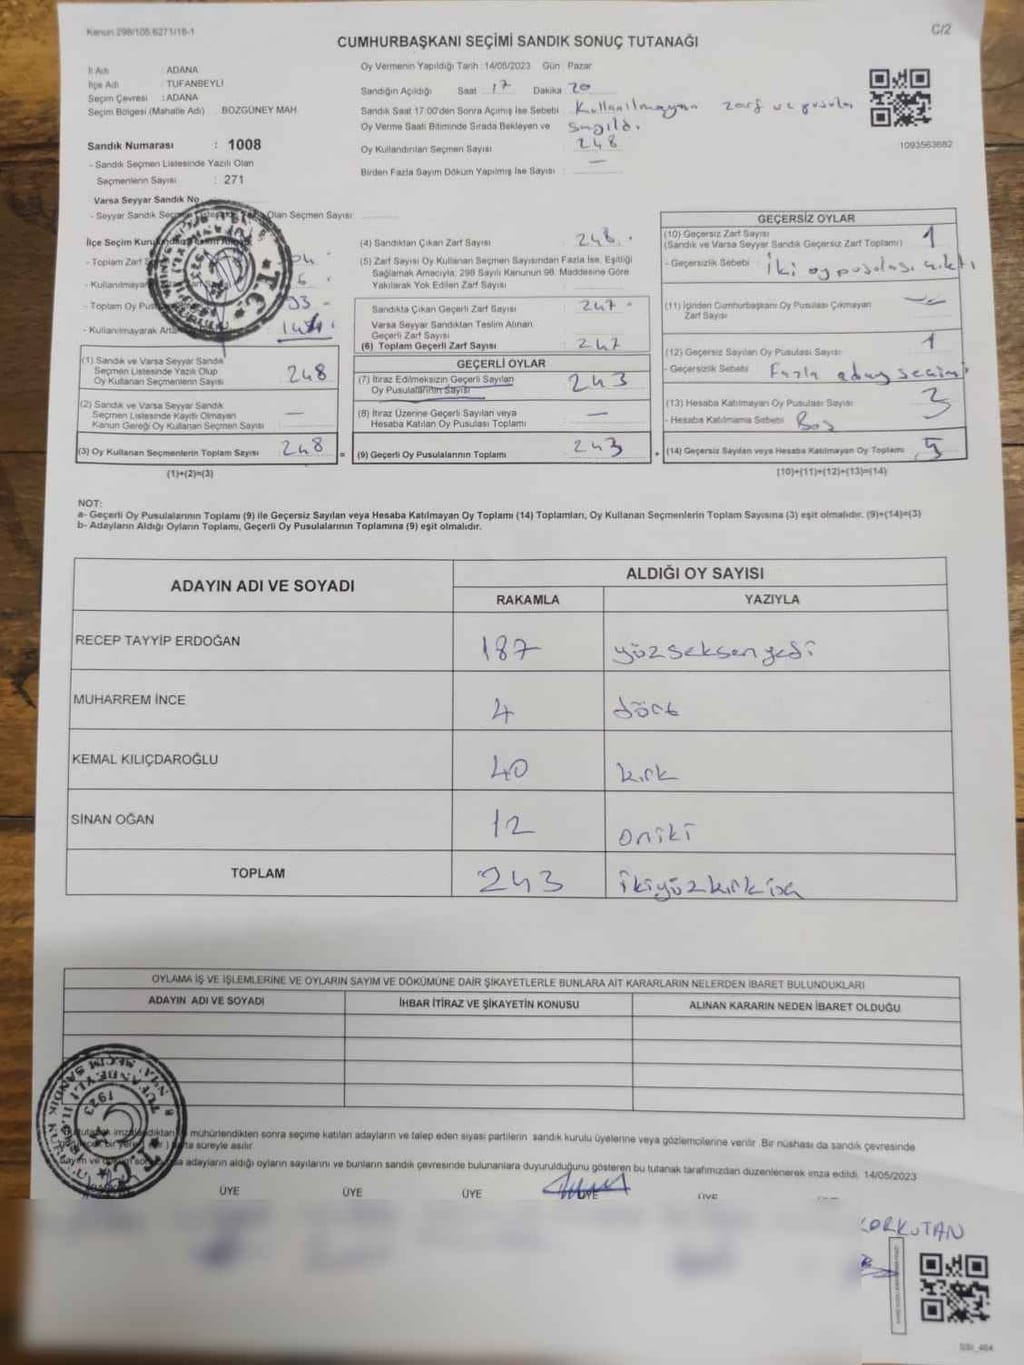 Kanun 298/105 6271/18-1
C/2
CUMHURBAŞKANI SEÇİMİ SANDIK SONUÇ TUTANAĞI
İl Adı : ADANA
İlçe Adı : TUFANBEYLİ
Seçim Çevresi : ADANA
Seçim Bölgesi (Mahalle Adı) BOZGÜNEY MAH.
Sandık Numarası : 1008
- Sandık Seçmen Listesinde Yazılı Olan
Seçmenlerin Sayısı : 271
Varsa Seyyar Sandık No
- Seyyar Sandık Olan Seçmen Sayısı
Oy Vermenin Yapıldığı Tarih 14/05/2023 Gün Pazar
Sandığın Açıldığı Saat 17 Dakika 20
Sandık Saat 17:00'den Sonra Açılmış İse Sebebi Kullanılmayan zarf ve pusula
Oy Verme Saati Bitiminde Sırada Bekleyen ve sayıldı.
Oy Kullandırılan Seçmen Sayısı 248
Birden Fazla Sayım Döküm Yapılmış İse Sayısı —
1093563682
İlçe Seçim
- Toplam Zarf
- Kullanılmayan
- Toplam Oy
- Kullanılmayarak
(1) Sandık ve Varsa Seyyar Sandık
Seçmen Listesinde Yazılı Olup
Oy Kullanan Seçmenlerin Sayısı 248
(2) Sandık ve Varsa Seyyar Sandık
Seçmen Listesinde Kayıtlı Olmayan
Kanun Gereği Oy Kullanan Seçmen Sayısı —
(3) Oy Kullanan Seçmenlerin Toplam Sayısı 248
(1)+(2)=(3)
(4) Sandıktan Çıkan Zarf Sayısı 248
(5) Zarf Sayısı Oy Kullanan Seçmen Sayısından Fazla İse, Eşitliği
Sağlamak Amacıyla, 298 Sayılı Kanunun 98. Maddesine Göre
Yakılarak Yok Edilen Zarf Sayısı
Sandıkta Çıkan Geçerli Zarf Sayısı 247
Varsa Seyyar Sandıktan Teslim Alınan
Geçerli Zarf Sayısı
(6) Toplam Geçerli Zarf Sayısı 247
GEÇERLİ OYLAR
(7) İtiraz Edilmeksizin Geçerli Sayılan
Oy Pusulalarının Sayısı 243
(8) İtiraz Üzerine Geçerli Sayılan veya
Hesaba Katılan Oy Pusulası Toplamı —
= (9) Geçerli Oy Pusulalarının Toplamı 243
GEÇERSİZ OYLAR
(10) Geçersiz Zarf Sayısı
(Sandık ve Varsa Seyyar Sandık Geçersiz Zarf Toplamı) 1
- Geçersizlik Sebebi İki oy pusulası çıktı
(11) İçinden Cumhurbaşkanı Oy Pusulası Çıkmayan
Zarf Sayısı
(12) Geçersiz Sayılan Oy Pusulası Sayısı 1
- Geçersizlik Sebebi Fazla aday seçimi
(13) Hesaba Katılmayan Oy Pusulası Sayısı 3
- Hesaba Katılmama Sebebi Boş
+ (14) Geçersiz Sayılan veya Hesaba Katılmayan Oy Toplamı 5
(10)+(11)+(12)+(13)=(14)
NOT:
a- Geçerli Oy Pusulalarının Toplamı (9) ile Geçersiz Sayılan veya Hesaba Katılmayan Oy Toplamı (14) Toplamları, Oy Kullanan Seçmenlerin Toplam Sayısına (3) eşit olmalıdır. (9)+(14)=(3)
b- Adayların Aldığı Oyların Toplamı, Geçerli Oy Pusulalarının Toplamına (9) eşit olmalıdır.
ADAYIN ADI VE SOYADI
ALDIĞI OY SAYISI
RAKAMLA YAZIYLA
RECEP TAYYİP ERDOĞAN 187 yüzseksenyedi
MUHARREM İNCE 4 dört
KEMAL KILIÇDAROĞLU 40 kırk
SİNAN OĞAN 12 oniki
TOPLAM 243
OYLAMA İŞ VE İŞLEMLERİNE VE OYLARIN SAYIM VE DÖKÜMÜNE DAİR ŞİKAYETLERLE BUNLARA AİT KARARLARIN NELERDEN İBARET BULUNDUKLARI
ADAYIN ADI VE SOYADI İHBAR İTİRAZ VE ŞİKAYETİN KONUSU ALINAN KARARIN NEDEN İBARET OLDUĞU
mühürlendikten sonra seçime katılan adayların ve talep eden siyasi partilerin sandık kurulu üyelerine veya gözlemcilerine verilir. Bir nüshası da sandık çevresinde
süreyle asılır.
adayların aldığı oyların sayılarını ve bunların sandık çevresinde bulunanlara duyurulduğunu gösteren bu tutanak tarafımızdan düzenlenerek imza edildi. 14/05/2023
ÜYE ÜYE ÜYE ÜYE ÜYE
KORKUTAN